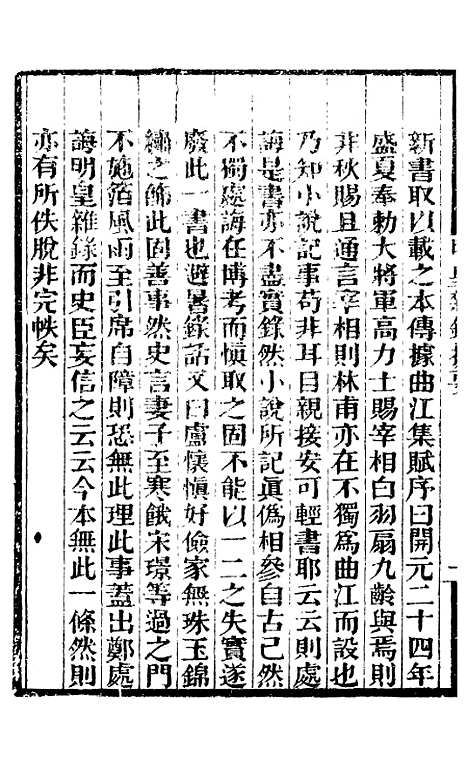 新書取以載之本傳據曲江集賦序曰開元二十四年
盛夏奉勅大將軍高力士賜宰相白羽扇九齡與焉則
非秋賜且通言宰相則林甫亦在不獨爲曲江而設也
乃知小說記事苟非耳目親接安可輕書耶云云則處
誨是書亦不盡實錄然小說所記眞僞相參自古已然
不獨處誨在博考而愼取之固不能以一二之失實遂
廢此一書也避暑錄話又曰盧懷愼好儉家無珠玉錦
繡之飾此固善事然史言妻子至寒餓宋璟等過之門
不施箔風雨至引席自障則恐無此理此事蓋出鄭處
誨明皇雜錄而史臣妄信之云云今本無此一條然則
亦有所佚脫非完帙矣